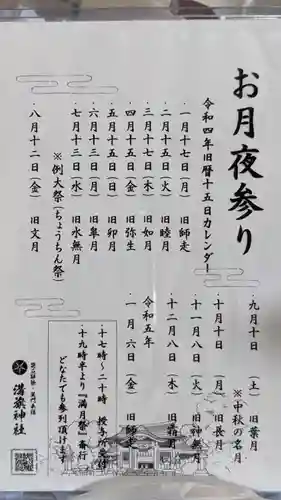 お月夜参り
令和四年旧暦十五日カレンダー
・一月十七日(月) 旧師走
・二月十五日(火) 旧睦月
・三月十七日(木) 旧如月
・四月十五日(金) 旧弥生
・五月十五日(日) 旧卯月
・六月十三日(月) 旧皐月
・七月十三日(水) 旧水無月
※例大祭(ちょうちん祭)
・八月十二日(金) 旧文月
・九月十日 (土) 旧葉月
※中秋の名月
・十月十日 (月) 旧長月
・十一月八日 (火)
・十二月八日 (木) 旧霜月
令和五年
・一月 六日 (金) 旧師走
・十七時〜二十時 授与所受付
・十九時半より『満月祭』斎行
どなたでも参列頂けます
溝旗神社